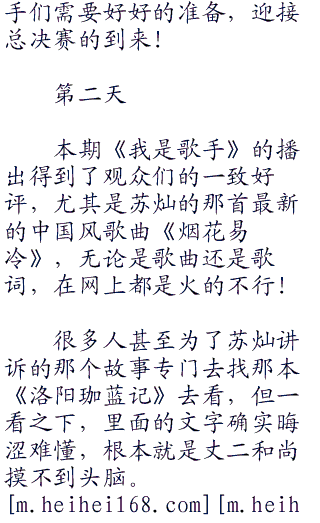 手们需要好好的准备，迎接
总决赛的到来！
第二天
本期《我是歌手》的播
出得到了观众们的一致好
评，尤其是苏灿的那首最新
的中国风歌曲《烟花易
冷》，无论是歌曲还是歌
词，在网上都是火的不行！
很多人甚至为了苏灿讲
诉的那个故事专门去找那本
《洛阳珈蓝记》去看，但一
看之下，里面的文字确实晦
涩难懂，根本就是丈二和尚
摸不到头脑。
[m.heihei168.com][m.heih